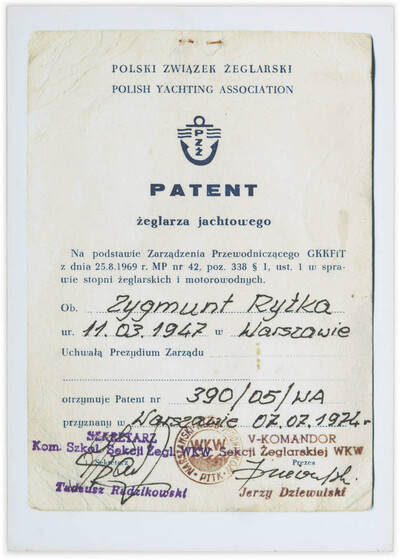 POLSKI ZWIĄZEK ŻEGLARSKI
POLISH YACHTING ASSOCIATION
PZŻ
PATENT
żeglarza jachtowego
Na podstawie Zarządzenia Przewodniczącego GKKFiT
z dnia 25.8.1969 r. MP nr 42, poz. 338 § 1, ust. 1 w spra-
wie stopni żeglarskich i motorowodnych.
Ob. Zygmunt Ryżka
ur. 11.03.1947 w Warszawie
Uchwałą Prezydium Zarządu
otrzymuje Patent nr 390/05/WA
przyznany w Warszawie 07.07.1974 r
SEKRETARZ V-KOMANDOR
Kom. Szkol. Sekcji Żegl. WKW Sekcji Żeglarskiej WKW
Sekretarz Prezes
Tadeusz Radzikowski Jerzy Dziewulski
WKW
PTTK